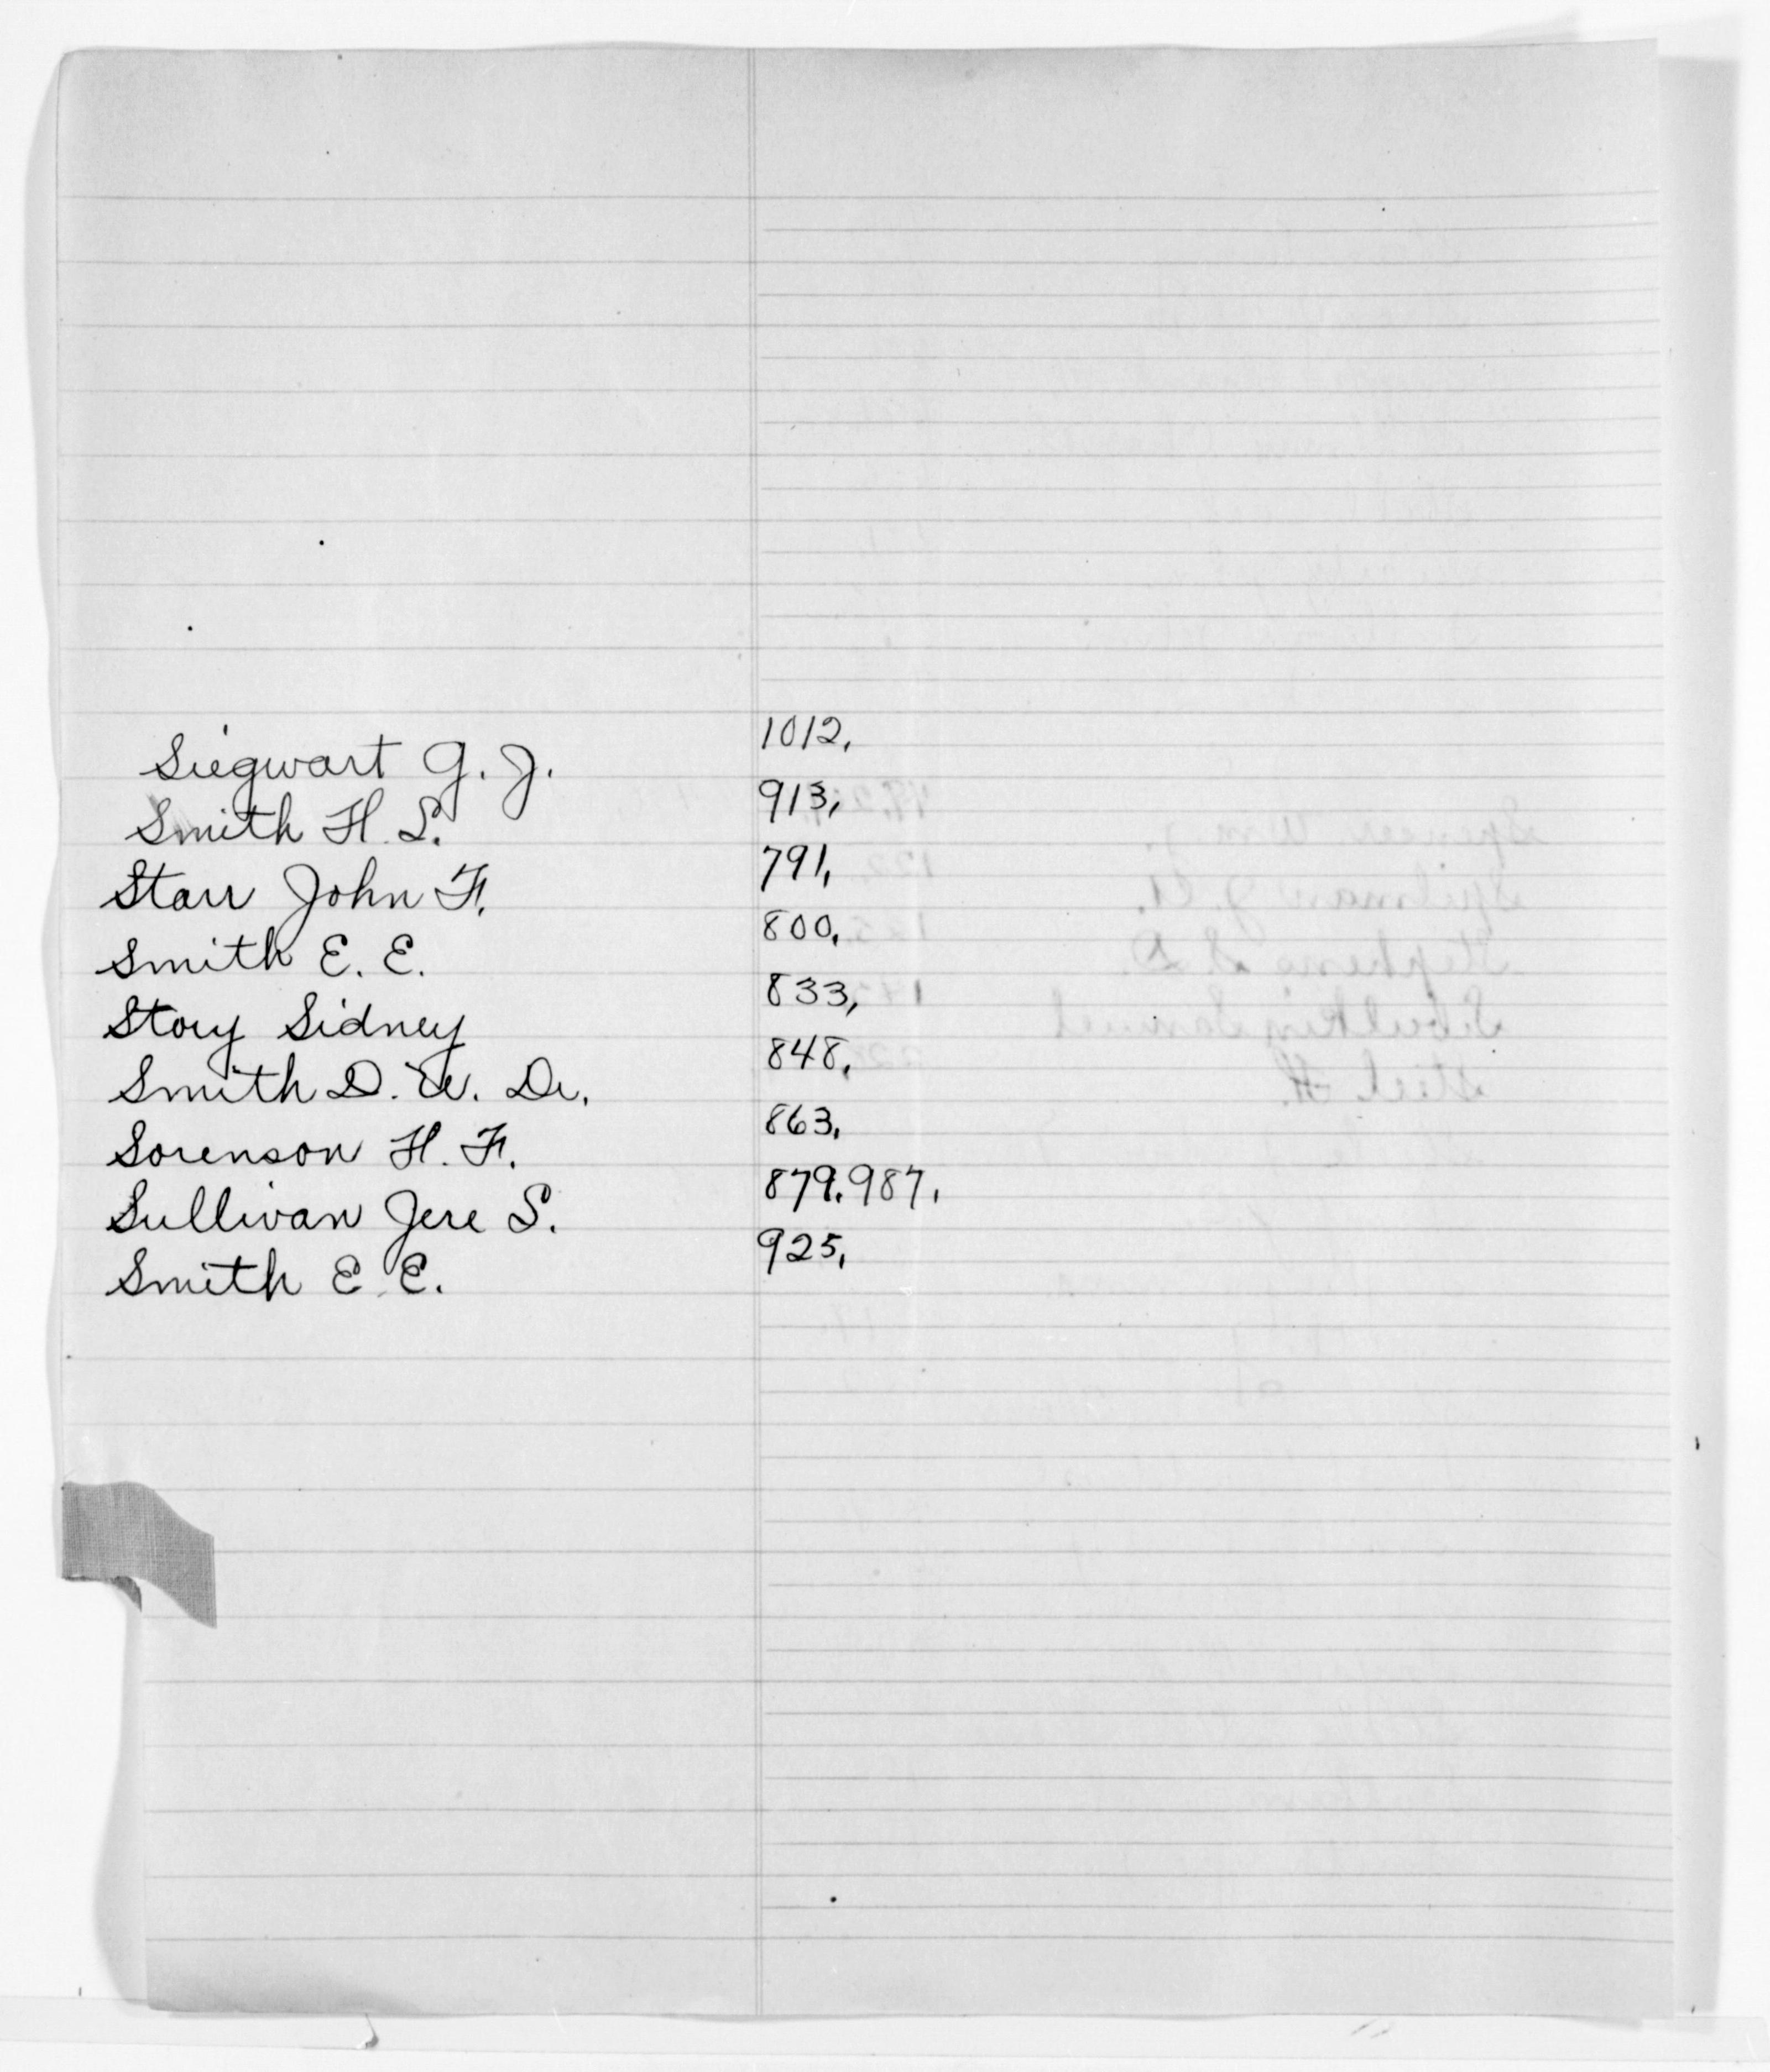 Siegwart G. J. 1012,
Smith H. S. 913,
Starr John F. 791,
Smith E. E. 800,
Story Sidney 833,
Smith D. W. Dr. 848,
Sorenson H. F. 863,
Sullivan Jere S. 879. 987,
Smith E. E. 925,